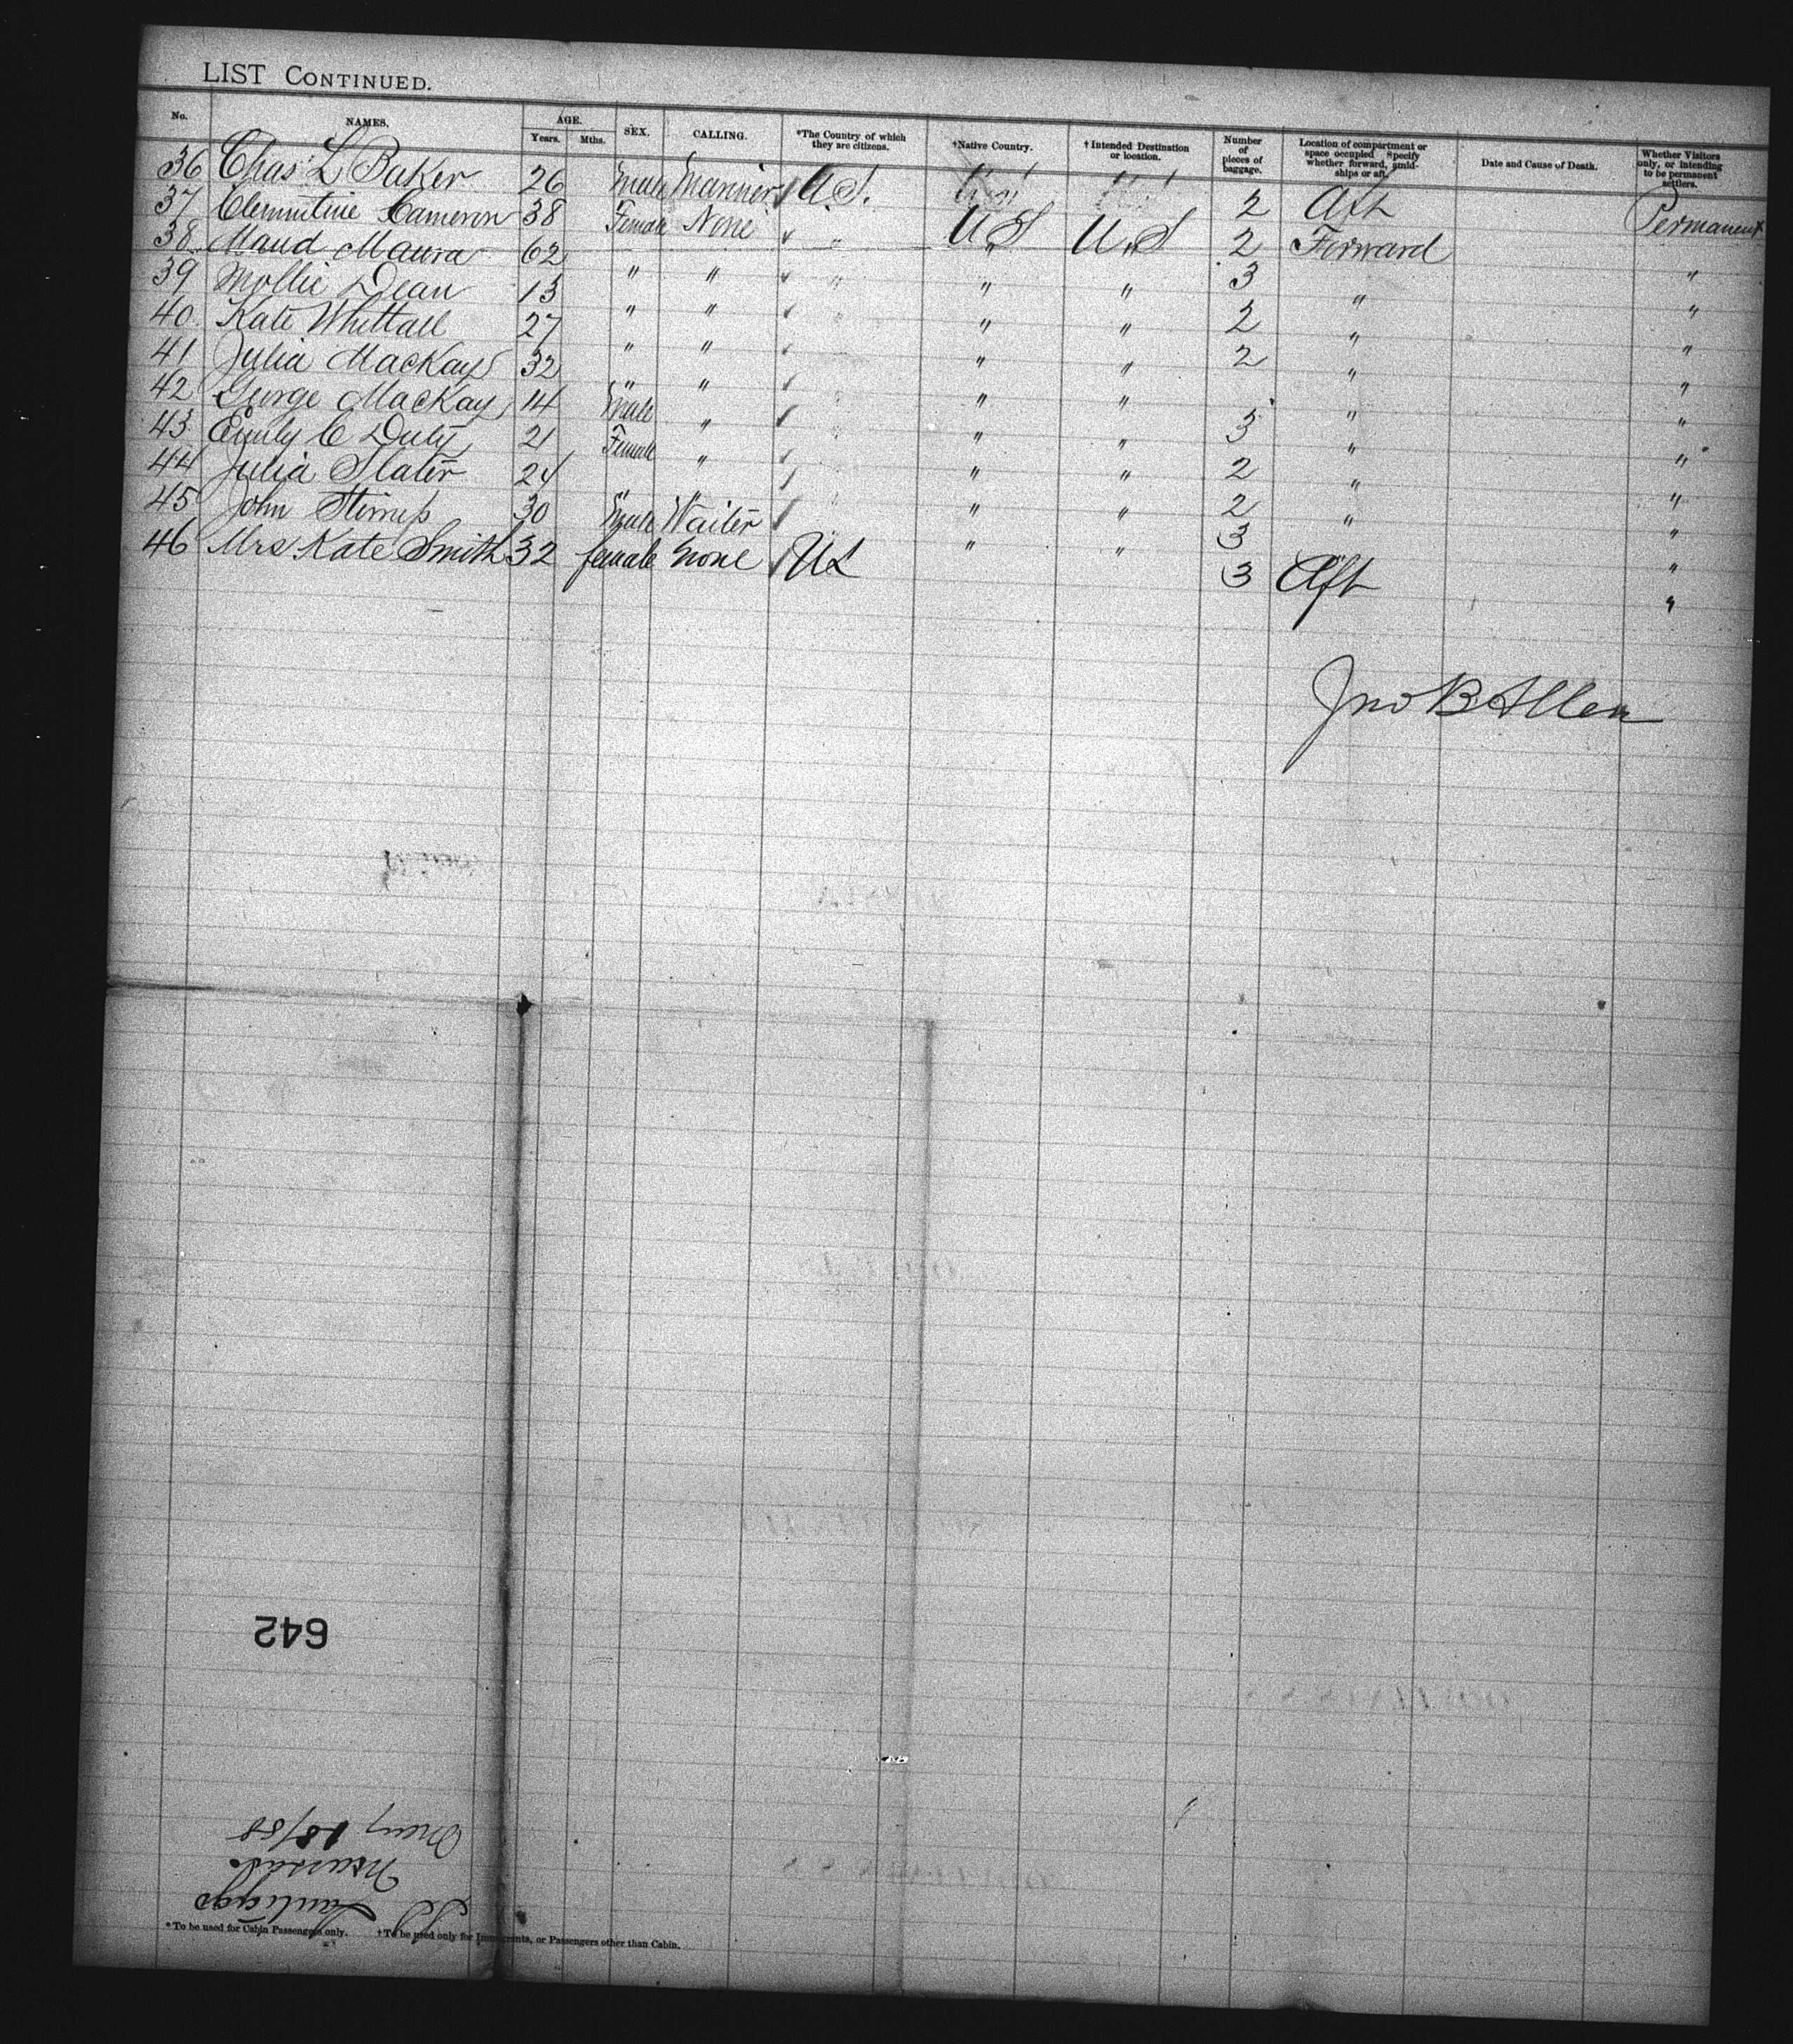 LIST CONTINUED.
No. NAMES. AGE. Years. Mths. SEX. CALLING. *The Country of which they are citizens. †Native Country. †Intended Destination or location. Number of pieces of baggage. Location of compartment or space occupied Specify whether forward, amidships or aft. Date and Cause of Death. Whether Visitors only, or intending to be permanent settlers.
36 Chas L Baker 26 Male Mariner U.S. 2 Aft Permanent
37 Clemintine Cameron 38 Female None " U S U S 2 Forward "
38 Maud Maura 62 " " " " " 3 " "
39 Mollie Dean 13 " " " " " 2 " "
40 Kate Whittall 27 " " " " " 2 " "
41 Julia MacKay 32 " " " " " "
42 George MacKay 14 Male " " " 3 " "
43 Emily C Duty 21 Female " " " 2 " "
44 Julia Slater 24 " " " " 2 " "
45 John Stirrup 30 Male Waiter " " 3 " "
46 Mrs Kate Smith 32 female none US 3 Aft "
Jno B Allen
642
May 18/88
Nassau
Santiago
*To be used for Cabin Passengers only. †To be used only for Immigrants, or Passengers other than Cabin.